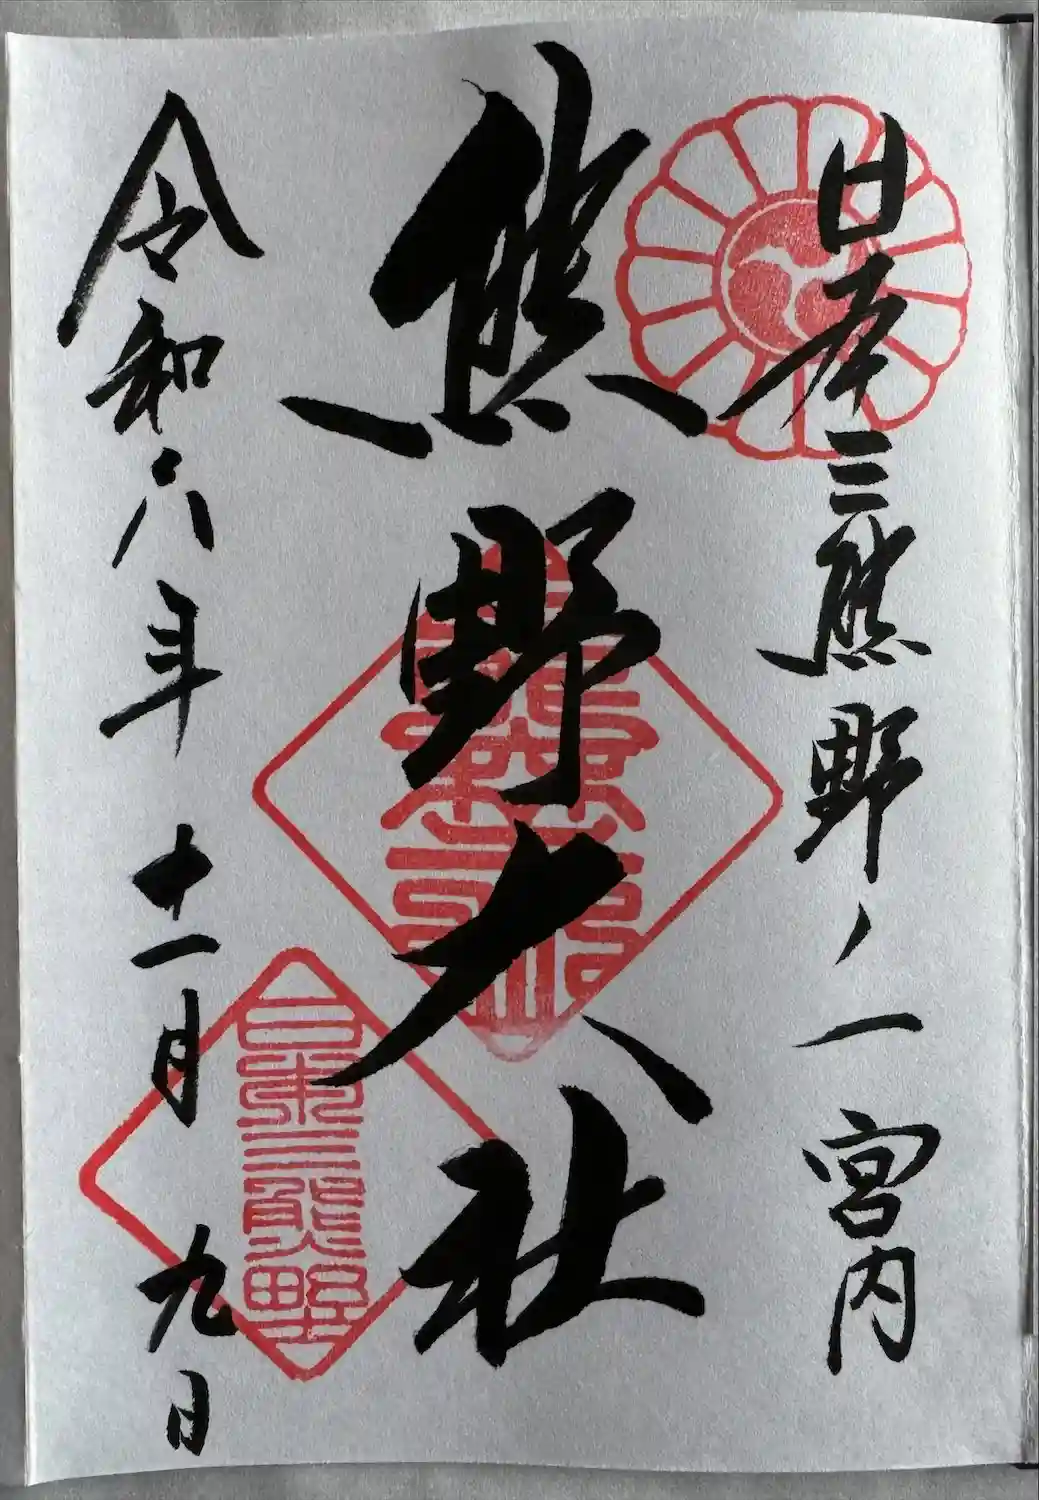 日本三熊野ノ一
宮内
熊野大社
令和六年十一月九日
日本三熊野